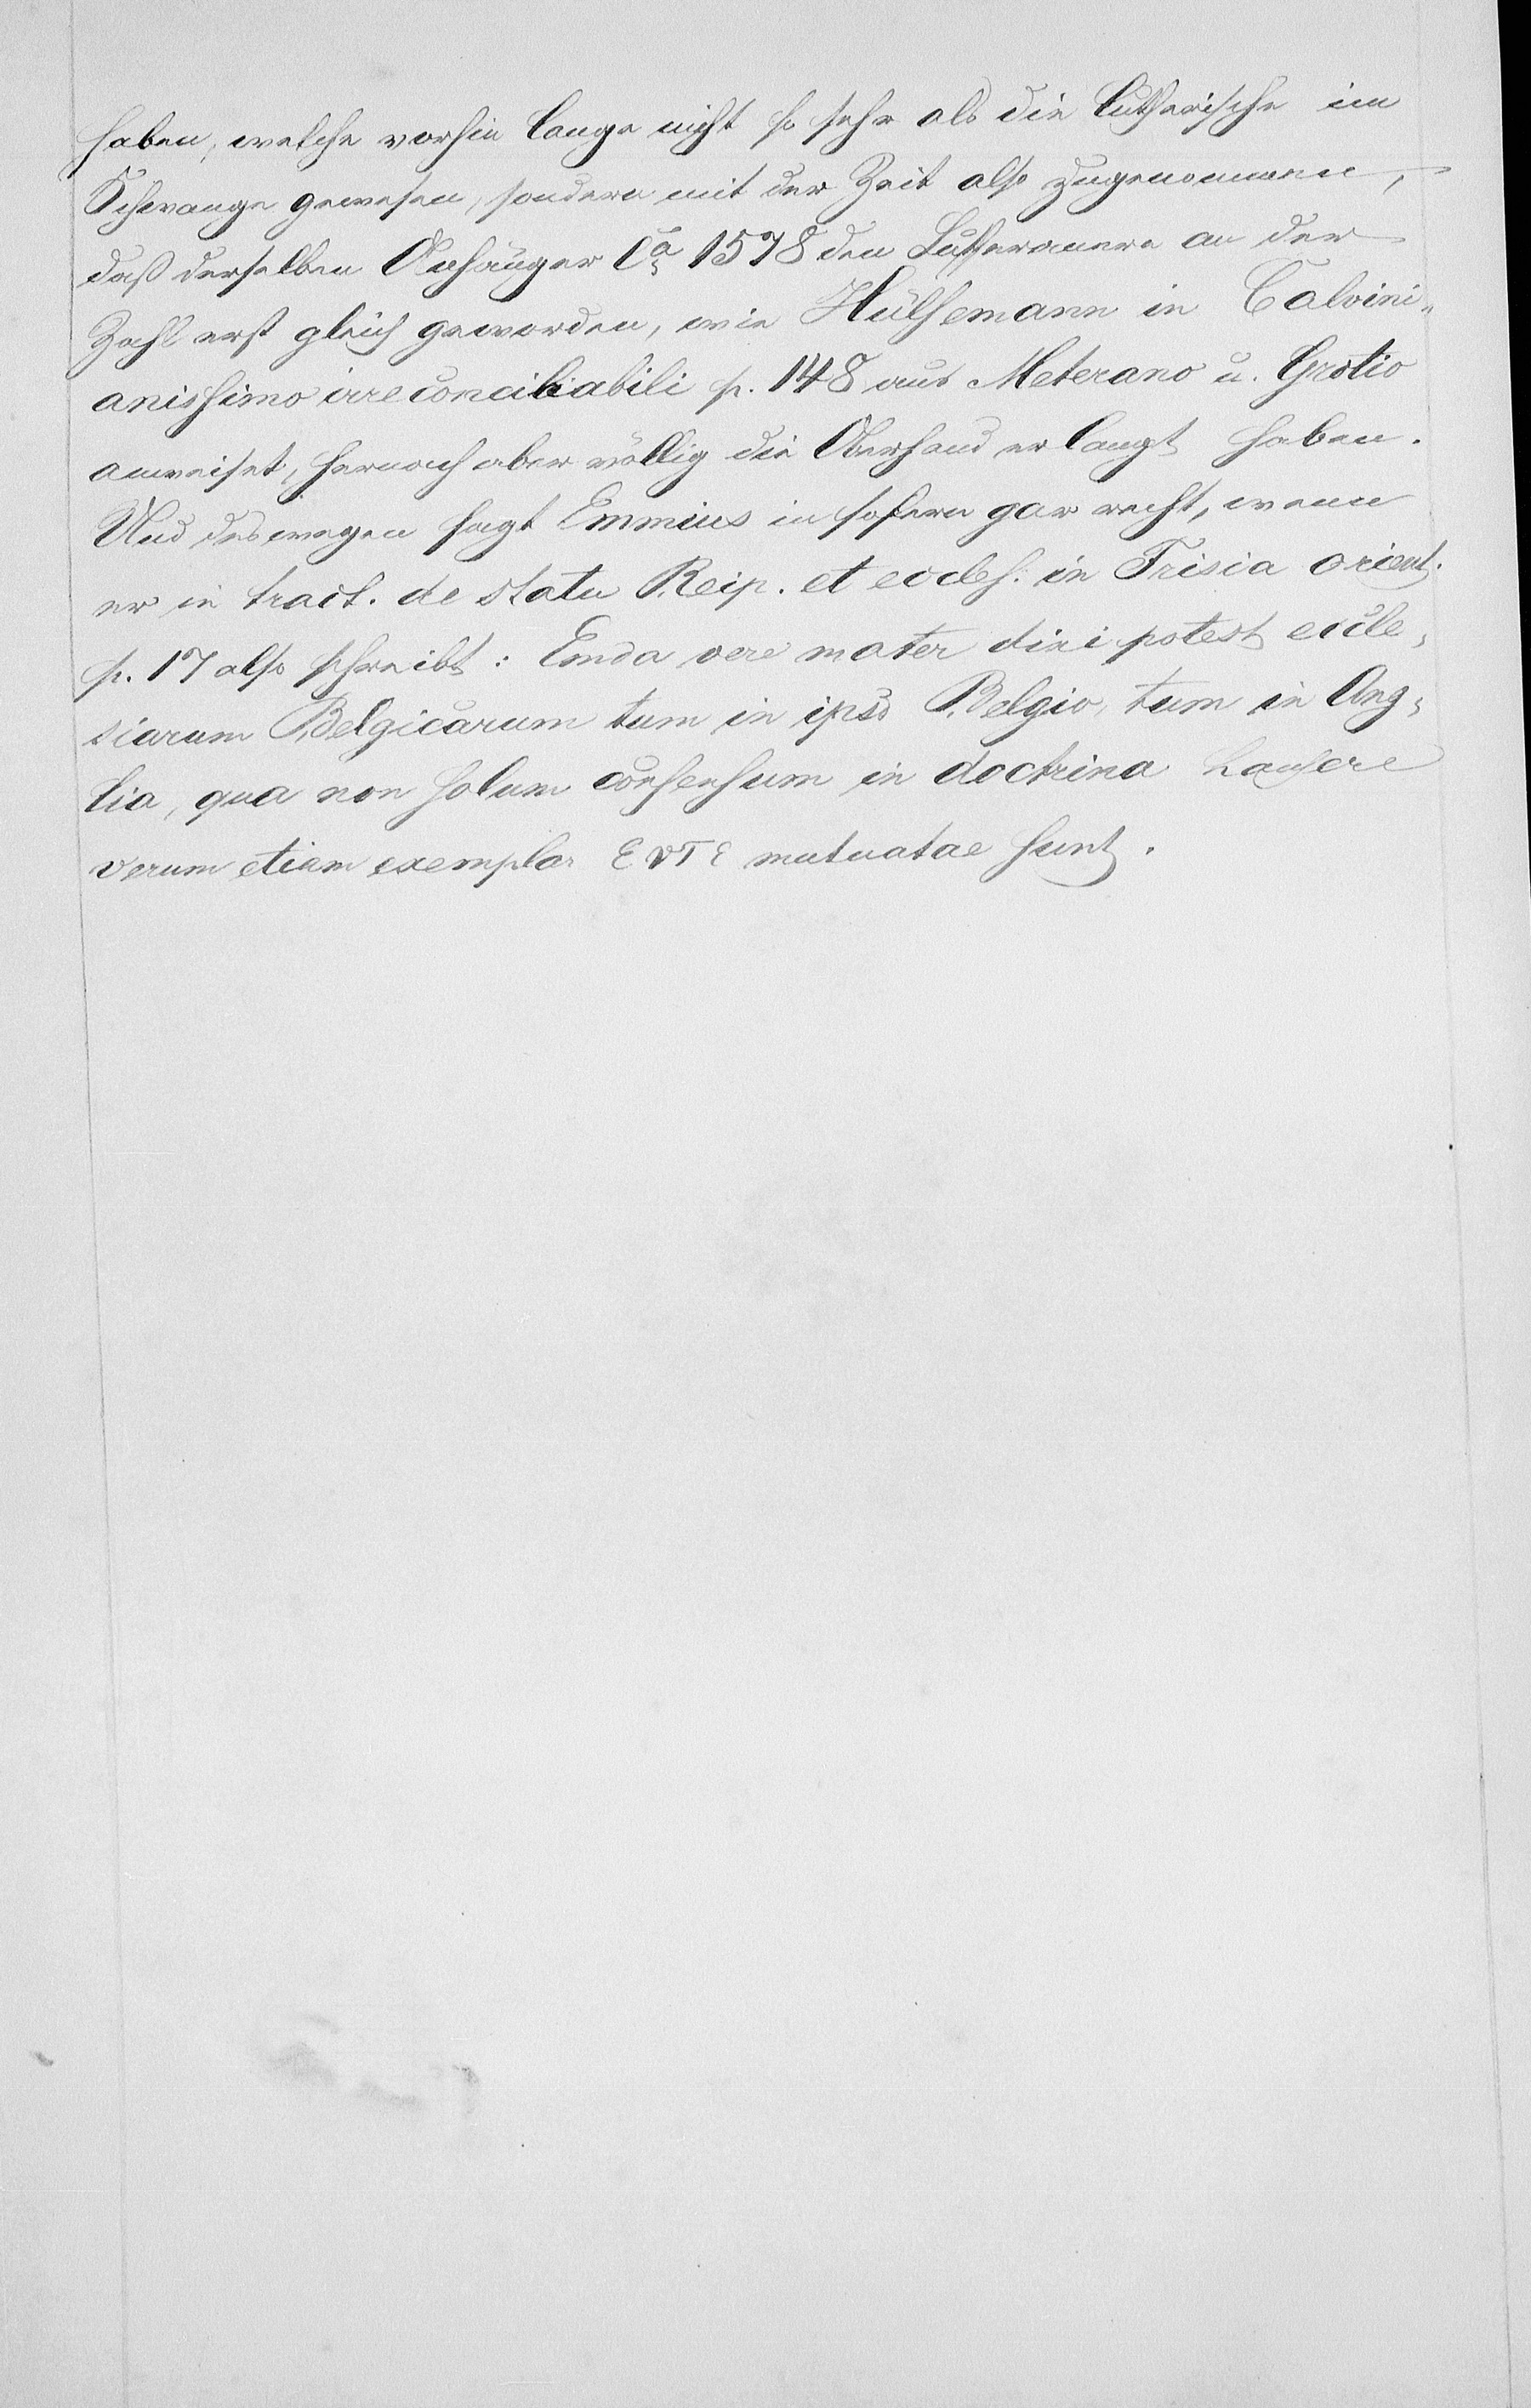 haben, welche vorhin lange nicht so sehr als die lutherische im
Schwange gewesen, sondern mit der Zeit also zugenommen,
daß derselben Anhänger Ca 1578 den Lutheranern an der
Zahl erst gleich geworden, wie Hülsemann in Calvini-
anissimo irreconciliabili p. 148 aus Meterano u. Grotio
anweiset, hernach aber völlig die Oberhand erlangt haben.
Und deswegen sagt Emmius in sofern gar recht, wenn
er in tract. de statu Reip. et eccles. in Frisia orient.
p. 17 also schreibt: Emda vere mater dici potest eccle-
siarum Belgicarum tum in ipso Belgio, tum in Ang-
lia, qua non solum consensum in doctrina hausere
verum etiam exemplar mutuatae sunt.